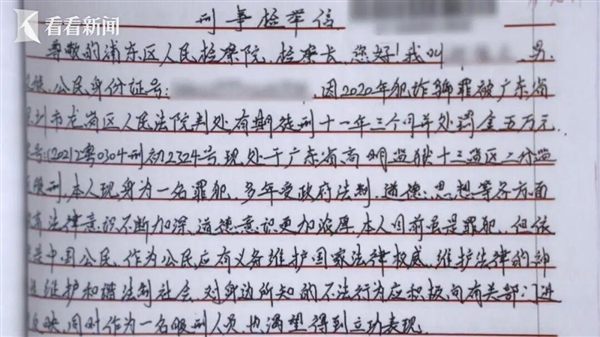 看看新闻
KNEWS
刑事检举信
尊敬的浦东区人民检察院,检察长,您好!我叫 男
汉族,公民身份证号: 因2020年犯诈骗罪被广东省
深圳市龙岗区人民法院判处有期徒刑十一年三个月并处罚金五万元
号:(2021)粤0304刑初2324号,现处于广东省高明监狱十三监区二分监
区服刑,本人现身为一名罪犯,多年受政府法制、道德、思想等各方面
法律意识不断加深,道德意识更加浓厚,本人目前虽是罪犯,但依
是中国公民,作为公民应有义务维护国家法律权威,维护法律的
维护和谐法制社会,对身边所知的不法行为应积极向有关部门进
反映,同时作为一名服刑人员,也渴望得到立功表现。